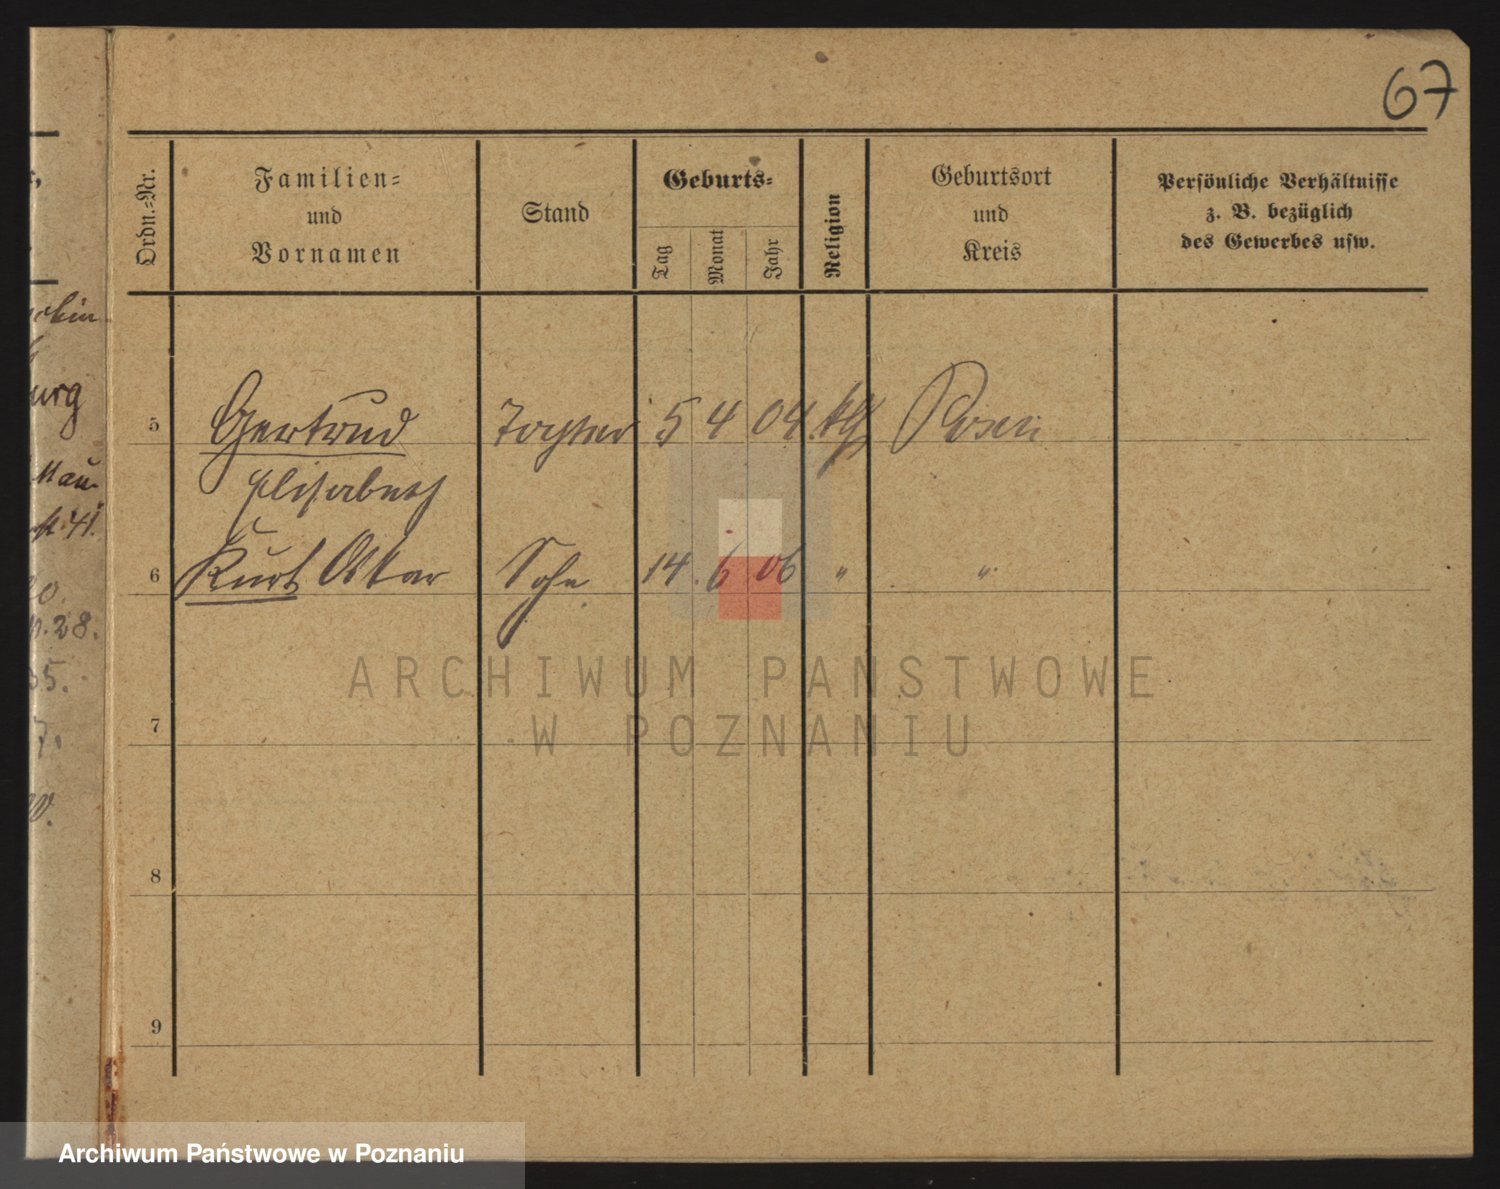 67
Ordn.-Nr.
Familien-
und
Vornamen
Stand
Geburts-
Tag
Monat
Jahr
Religion
Geburtsort
und
Kreis
Persönliche Verhältnisse
z. B. bezüglich
des Gewerbes usw.
5 Gertrud Tochter 5 4 04 Posen
Elisabeth
6 Kurt Sohn 14. 6 06 " "
7
8
9
urg
28.
35.
7.
ARCHIWUM PAŃSTWOWE
W POZNANIU
Archiwum Państwowe w Poznaniu